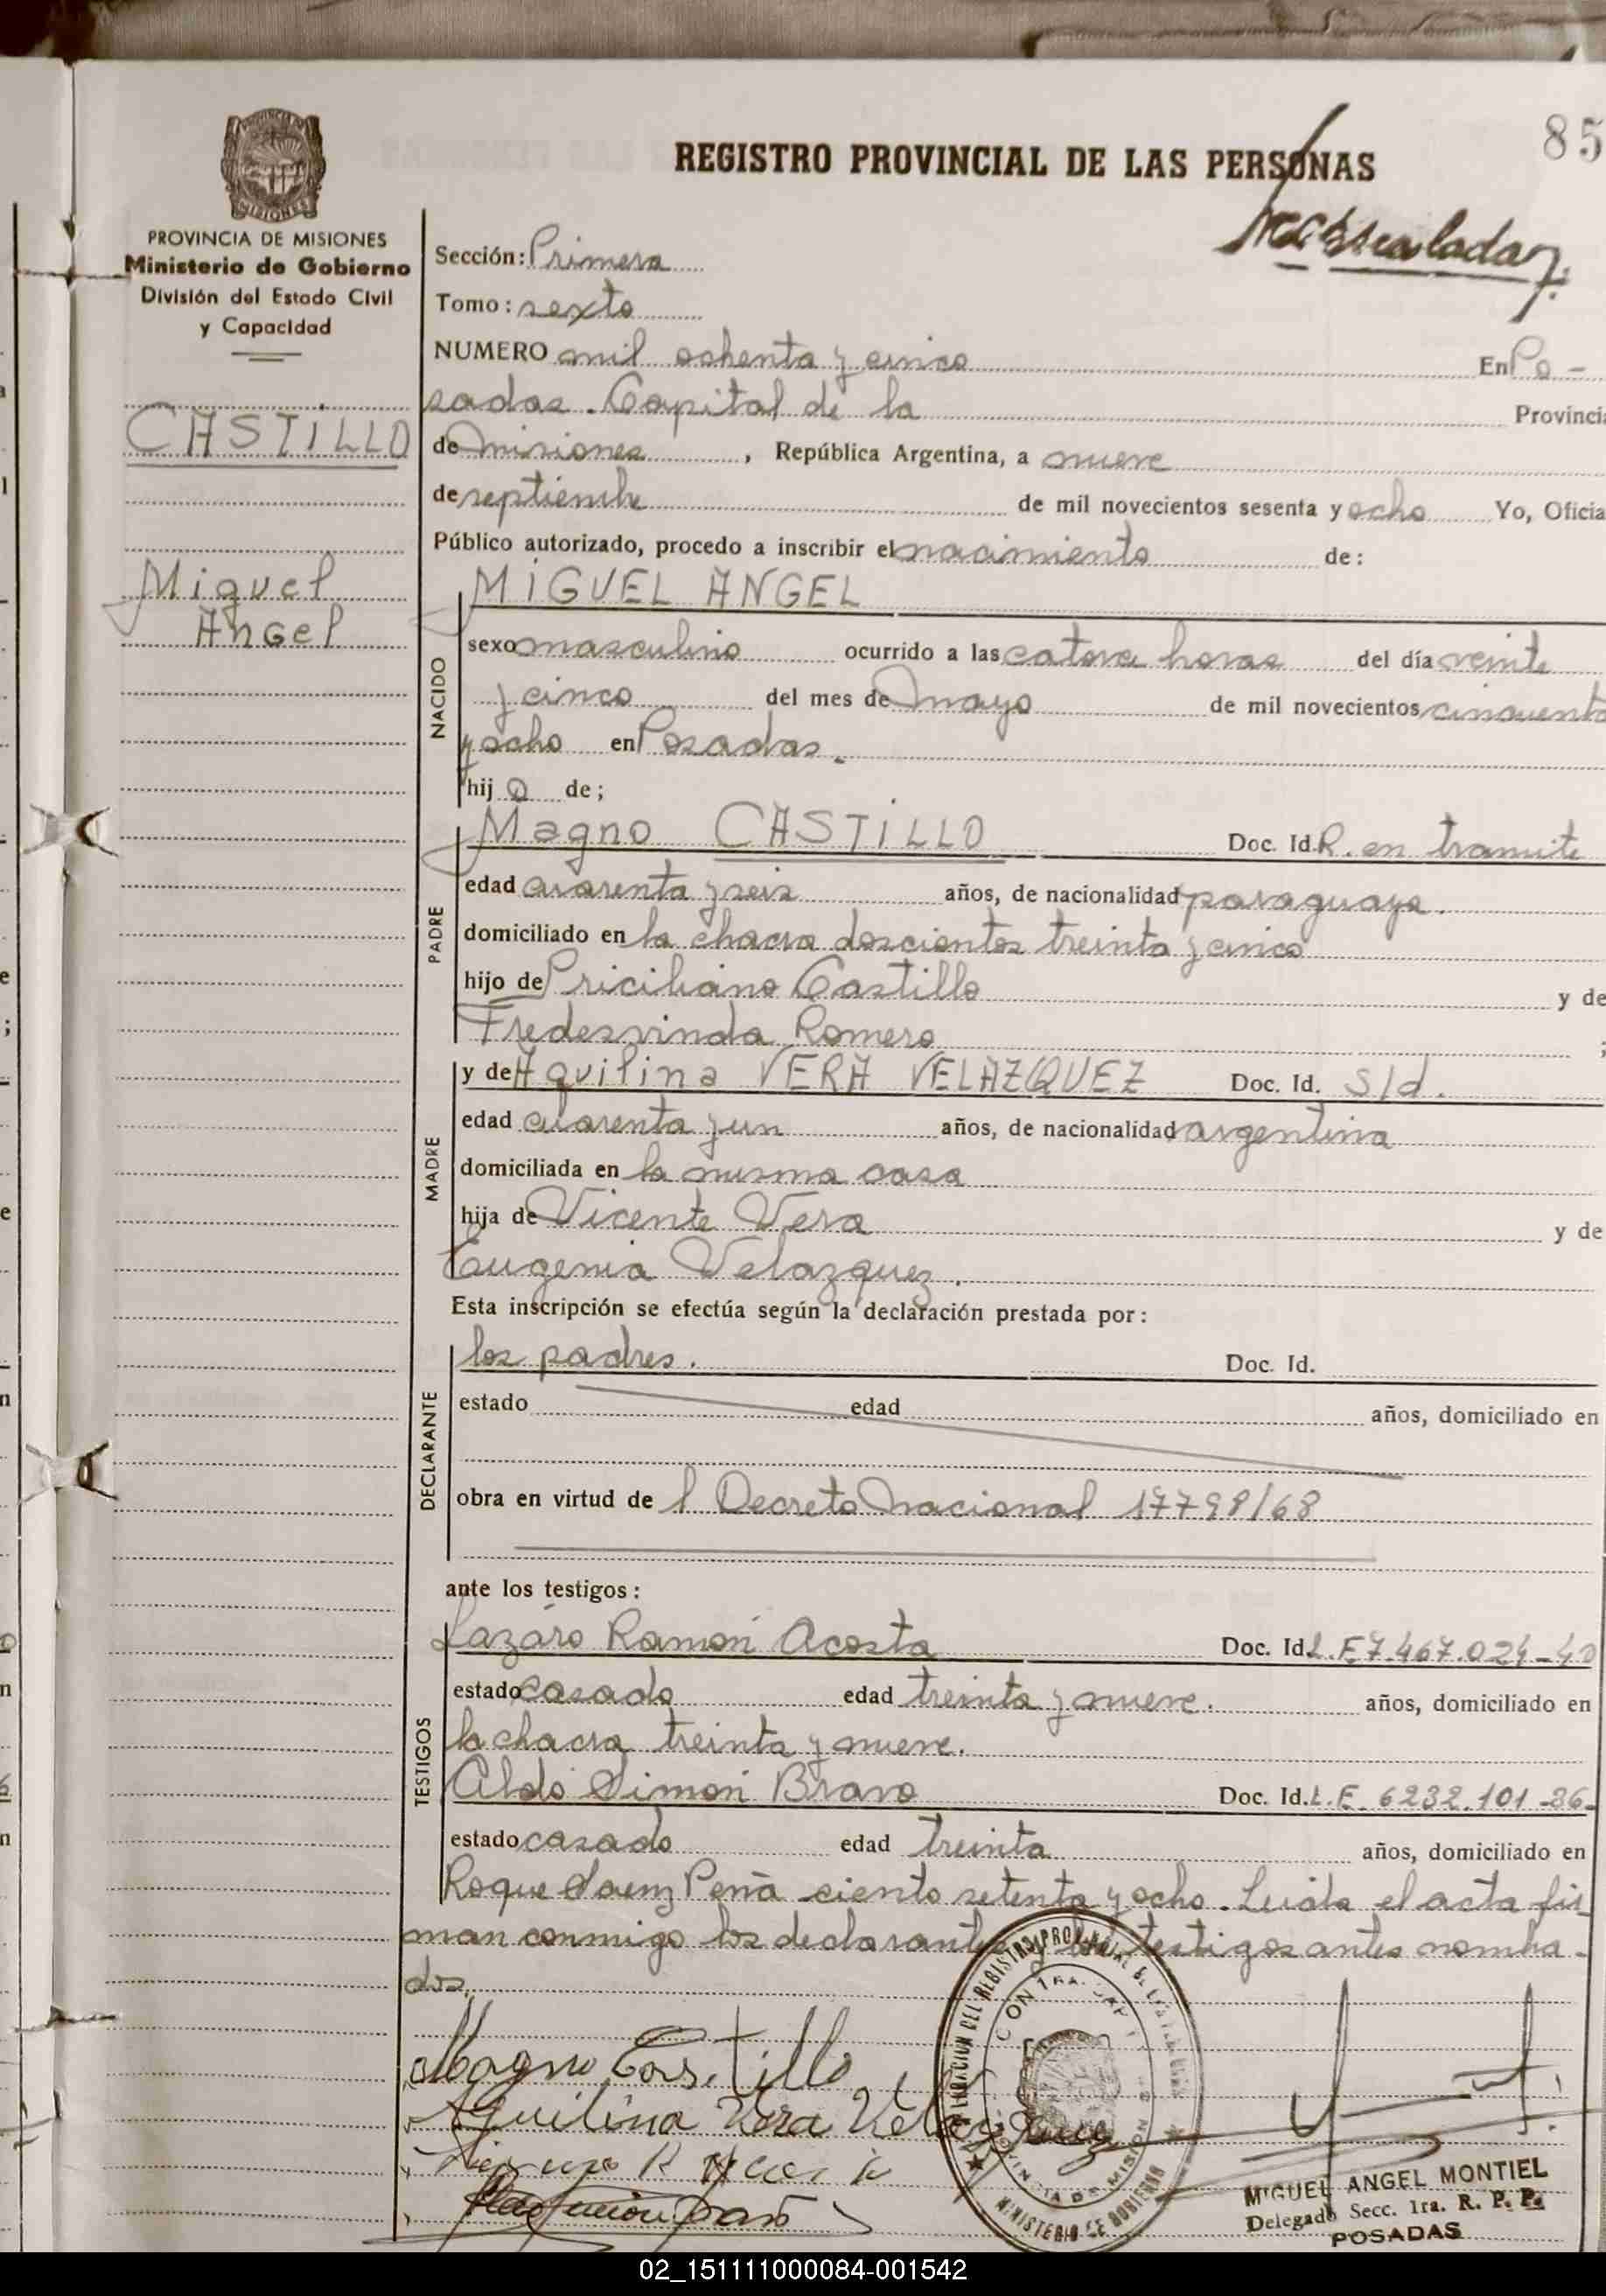 85
REGISTRO PROVINCIAL DE LAS PERSONAS
PROVINCIA DE MISIONES
Ministerio de Gobierno
División del Estado Civil
y Capacidad
CASTILLO
Miguel
Angel
Sección: Primera
Tomo: sexto
NUMERO mil ochenta y cinco En Po-
sadas. Capital de la Provincia
de Misiones, República Argentina, a nueve
de septiembre de mil novecientos sesenta y ocho Yo, Oficia
Público autorizado, procedo a inscribir el nacimiento de:
NACIDO
MIGUEL ANGEL
sexo masculino ocurrido a las catorce horas del día veinte
y cinco del mes de Mayo de mil novecientos cincuenta
y ocho en Posadas.
hijo de;
PADRE
Magno CASTILLO Doc. Id. R. en tramite
edad cuarenta y seis años, de nacionalidad paraguaya.
domiciliado en la chacra doscientos treinta y cinco
hijo de Priciliano Castillo y de
Fredesvinda Romero ;
MADRE
y de Aquilina VERA VELAZQUEZ Doc. Id. S/d.
edad cuarenta y un años, de nacionalidad argentina
domiciliada en la misma casa
hija de Vicente Vera y de
Eugenia Velazquez.
Esta inscripción se efectúa según la declaración prestada por:
DECLARANTE
los padres. Doc. Id.
estado edad años, domiciliado en
obra en virtud de l Decreto Nacional 17798/68
ante los testigos:
TESTIGOS
Lazáro Ramón Acosta Doc. Id. L.E 7.467.024-40
estado casado edad treinta y nueve. años, domiciliado en
la chacra treinta y nueve.
Aldo Simón Bravo Doc. Id. L.E. 6232.101-36-
estado casado edad treinta años, domiciliado en
Roque Saenz Peña ciento setenta y ocho. Leída el acta fir
man conmigo los declarantes y los testigos antes nombra-
dos.
Magno Castillo
Aquilina Vera Velazquez
MINISTERIO DE GOBIERNO
MIGUEL ANGEL MONTIEL
Delegado Secc. 1ra. R. P. P.
POSADAS
02_151111000084-001542